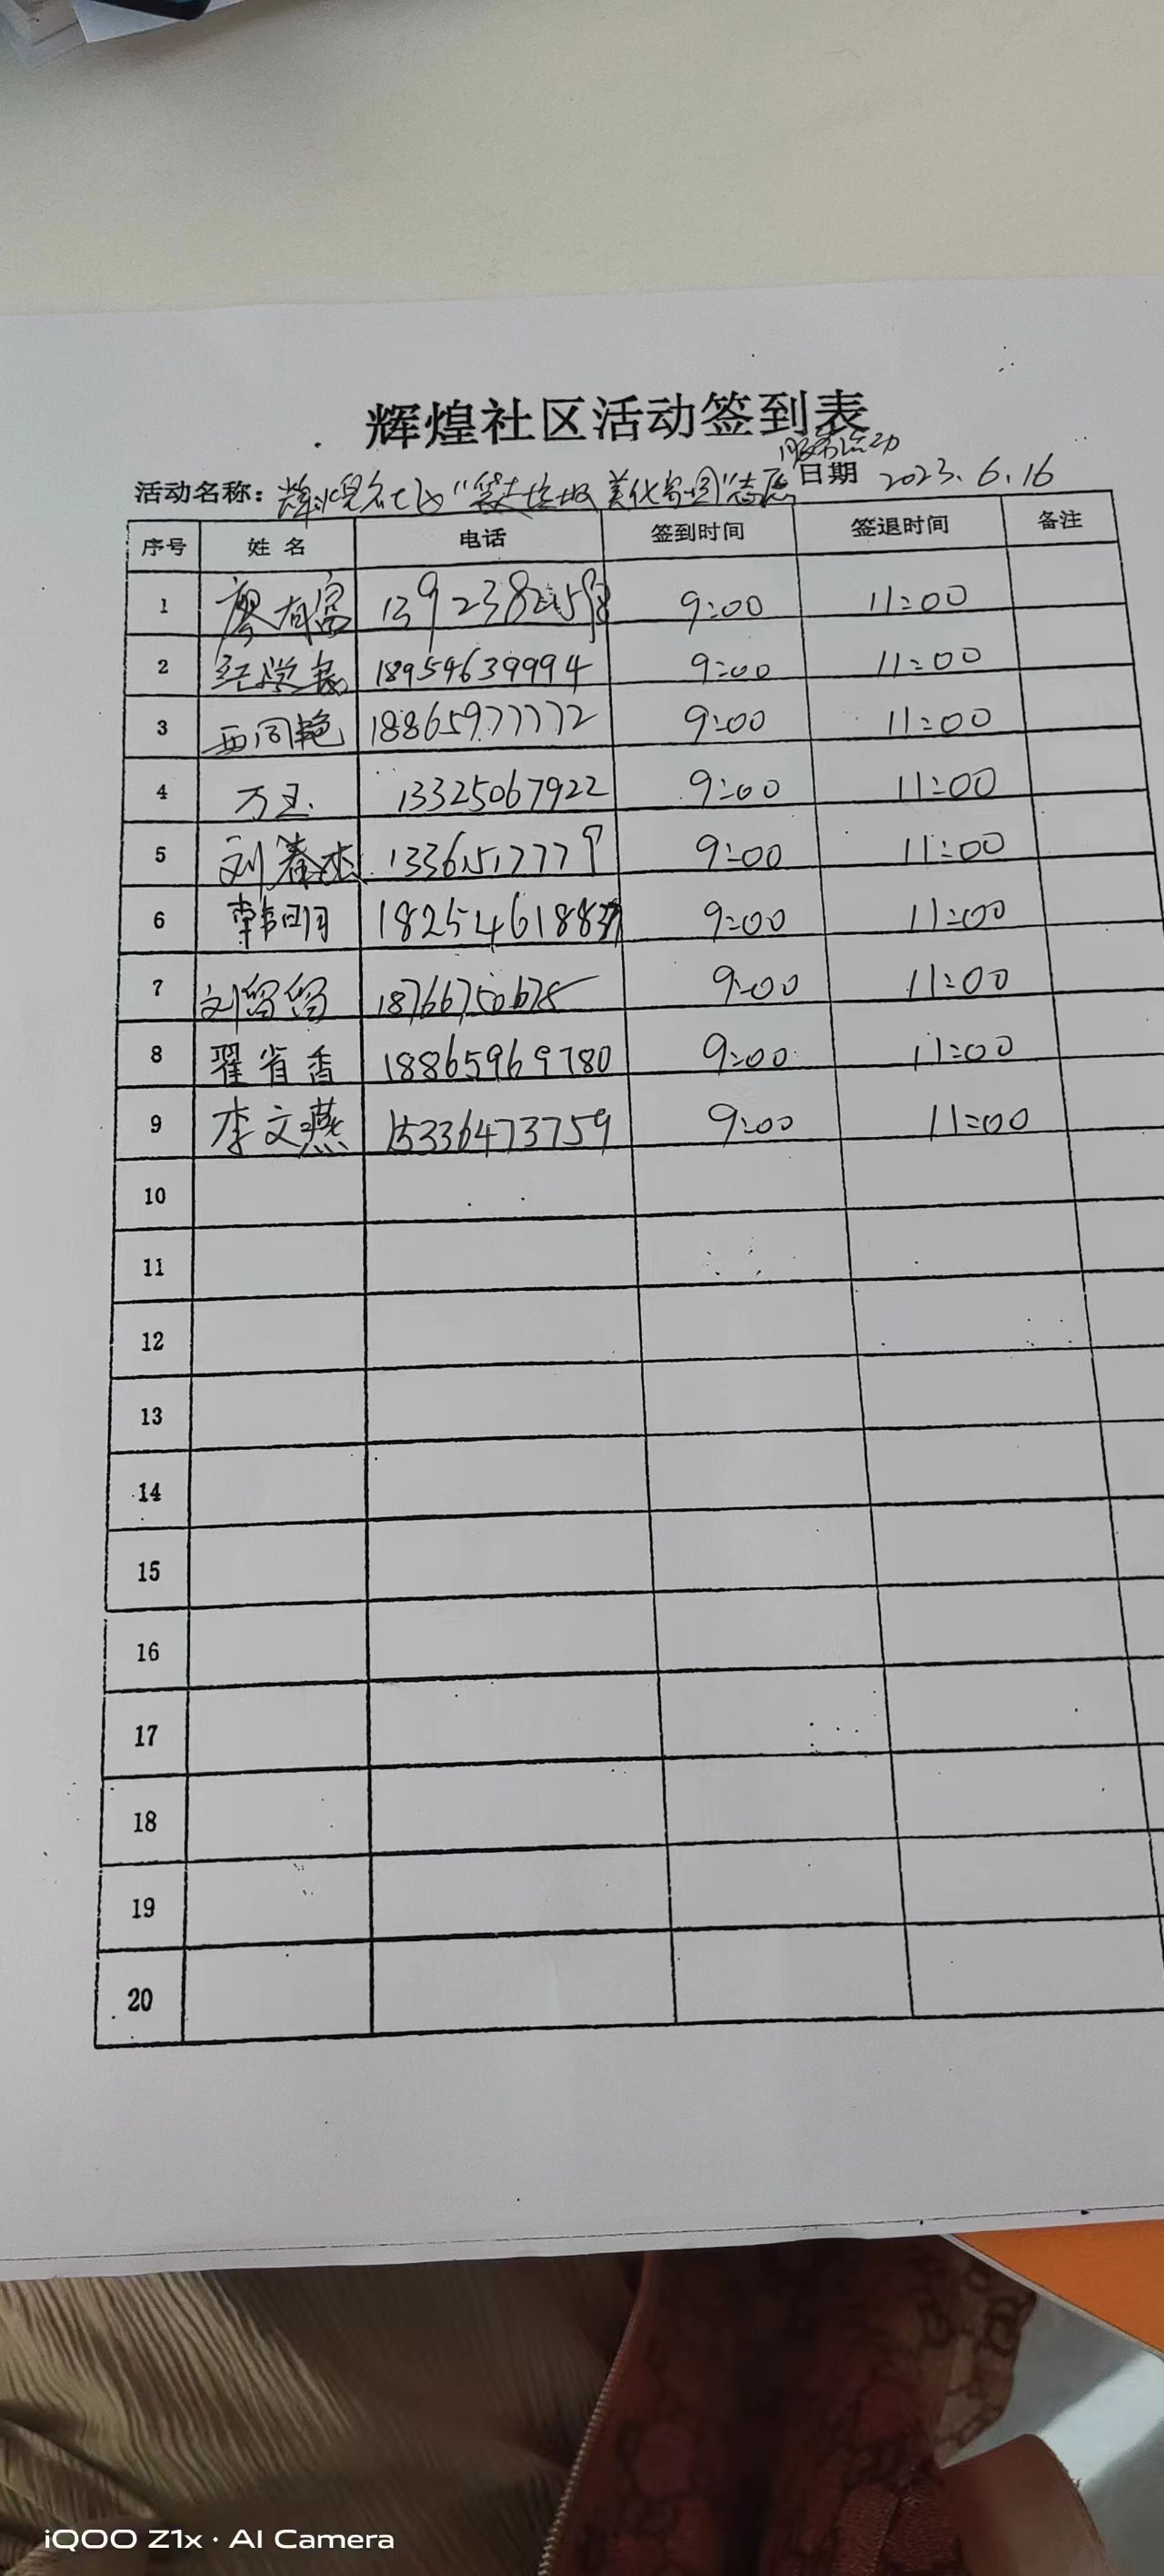 辉煌社区活动签到表
服务活动
活动名称：辉煌社区"袋走垃圾 美化家园"志愿 日期 2023.6.16
序号 姓名 电话 签到时间 签退时间 备注
1 廖有富 9:00 11:00
2 18954639994 9:00 11:00
3 18865977772 9:00 11:00
4 万玉 13325067922 9:00 11:00
5 刘春杰 13365177779 9:00 11:00
6 韩明 9:00 11:00
7 刘留留 18766750675 9:00 11:00
8 翟省香 18865969780 9:00 11:00
9 李文燕 15336473759 9:00 11:00
10
11
12
13
14
15
16
17
18
19
20
iQOO Z1x · AI Camera